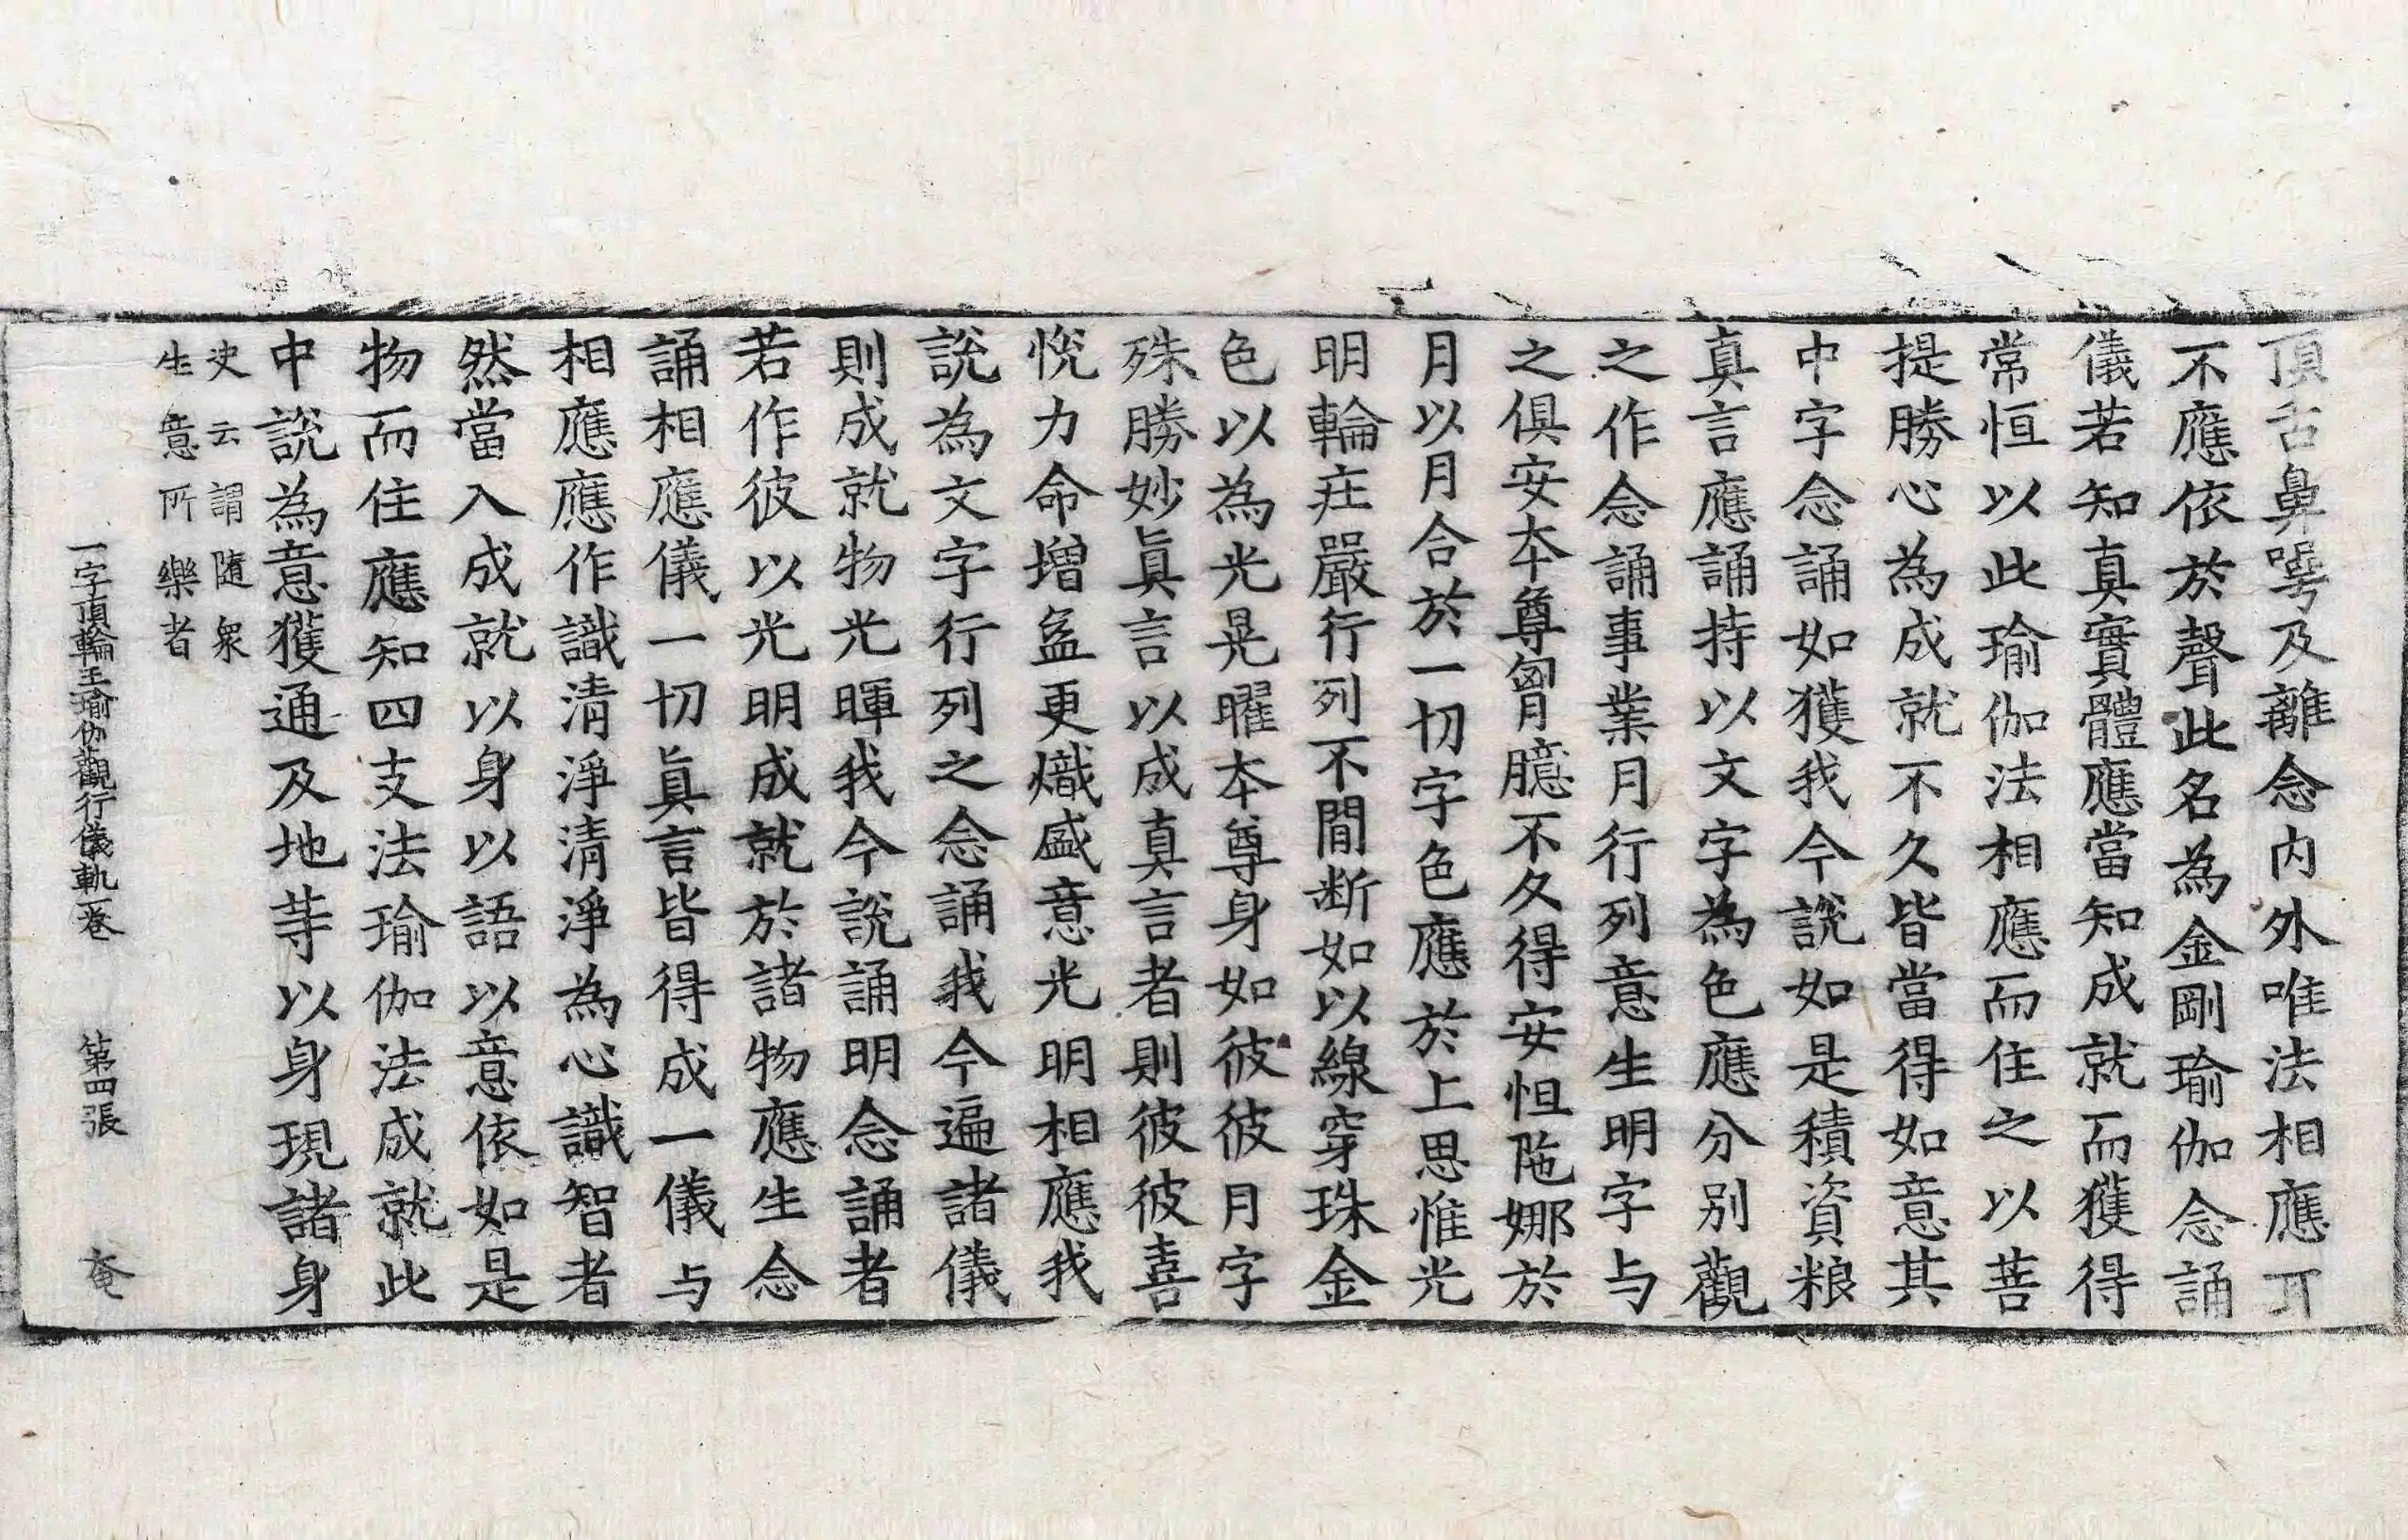 頂舌鼻㗁及離念內外唯法相應
不應依於聲此名為金剛瑜伽念誦
儀若知真實體應當知成就而獲得
常恒以此瑜伽法相應而住之以菩
提勝心為成就不久皆當得如意其
中字念誦如獲我今說如是積資粮
真言應誦持以文字為色應分別觀
之作念誦事業月行列意生明字与
之俱安本尊胷臆不久得安怛陁娜於
月以月合於一切字色應於上思惟光
明輪莊嚴行列不間断如以線穿珠金
色以為光晃曜本尊身如彼彼月字
殊勝妙真言以成真言者則彼彼喜
悅力命增益更熾盛意光明相應我
說為文字行列之念誦我今遍諸儀
則成就物光暉我今說誦明念誦者
若作彼以光明成就於諸物應生念
誦相應儀一切真言皆得成一儀与
相應應作識清淨清淨為心識智者
然當入成就以身以語以意依如是
物而住應知四支法瑜伽法成就此
中說為意獲通及地等以身現諸身
史云謂隨衆
生意所樂者
一字頂輪王瑜伽觀行儀軌一卷 第四張 奄